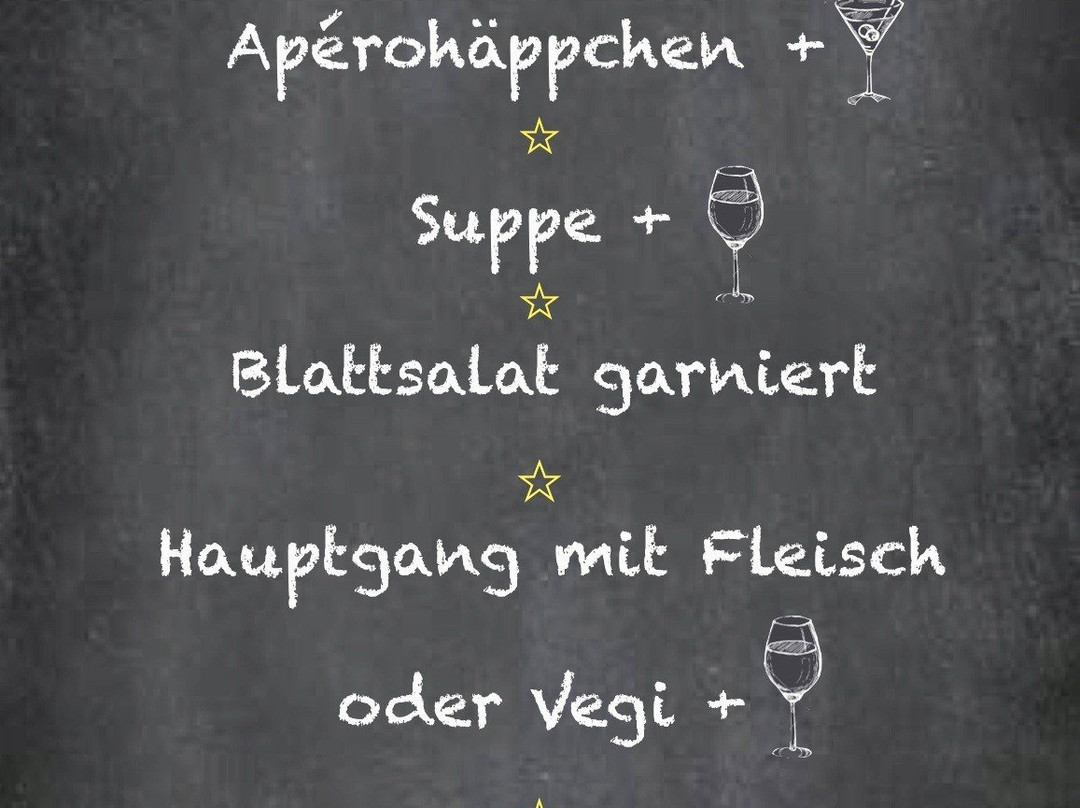 Apérohäppchen +
Suppe +
Blattsalat garniert
Hauptgang mit Fleisch
oder Vegi +